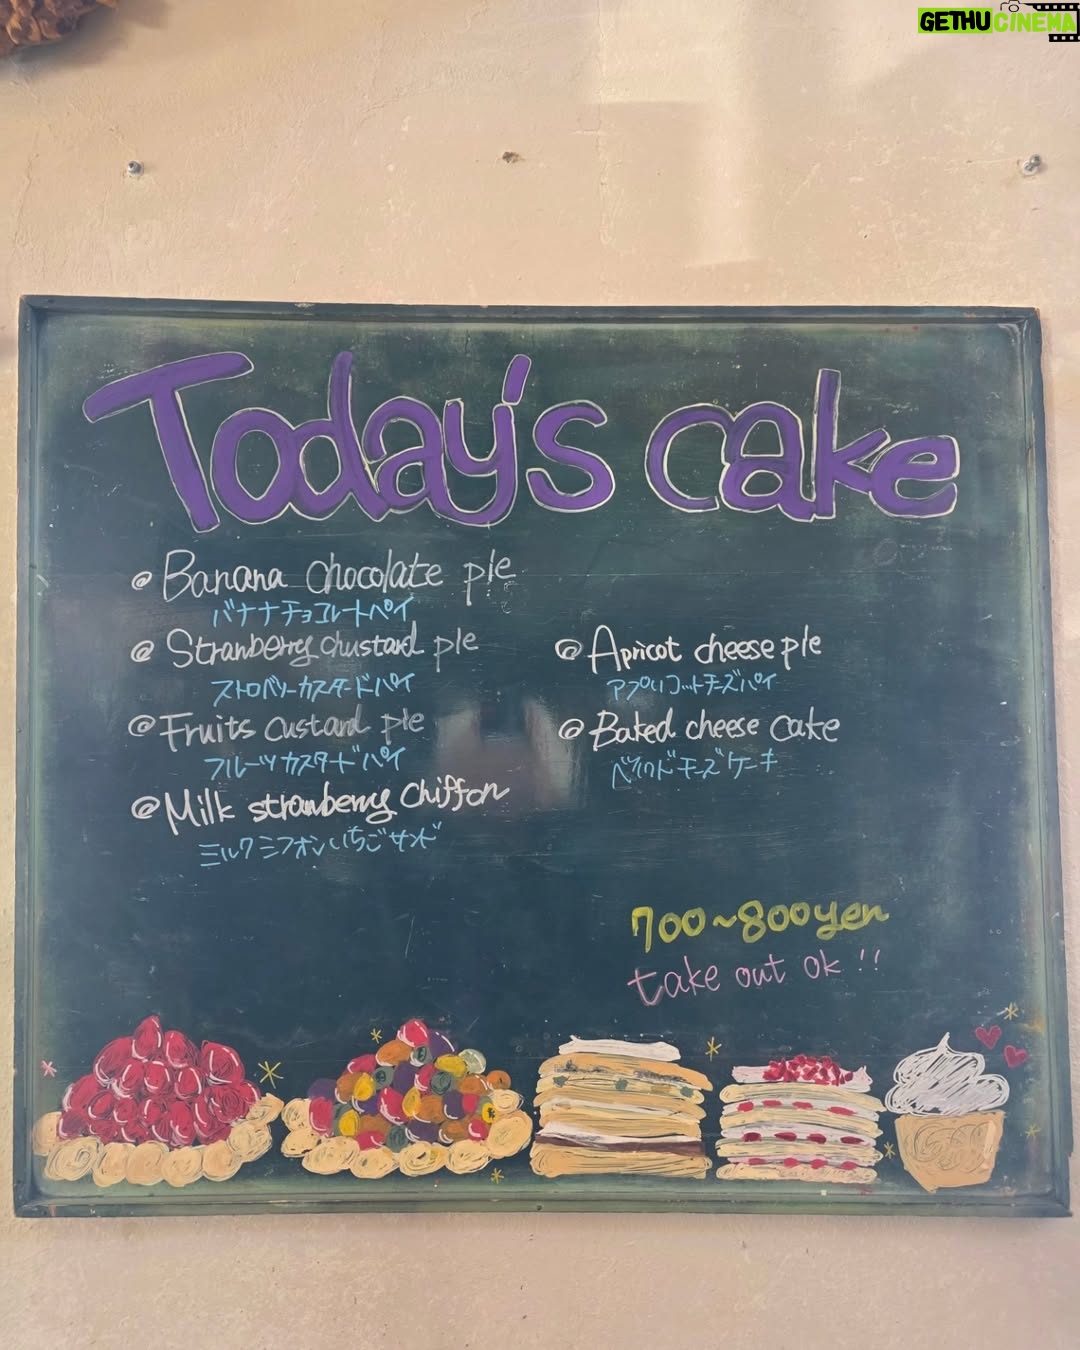 GETHU CINEMA
Today's cake
@ Banana chocolate pie
バナナチョコレートパイ
@ Stranberry chustard pie
ストロベリーカスタードパイ
@ Fruits custard pie
フルーツカスタードパイ
@ Milk stranberry chiffon
ミルクミフォンいちごサンド
@ Apricot cheese pie
アプリコットチーズパイ
@ Baked cheese cake
ベイクドチーズケーキ
700~800yen
take out ok !!